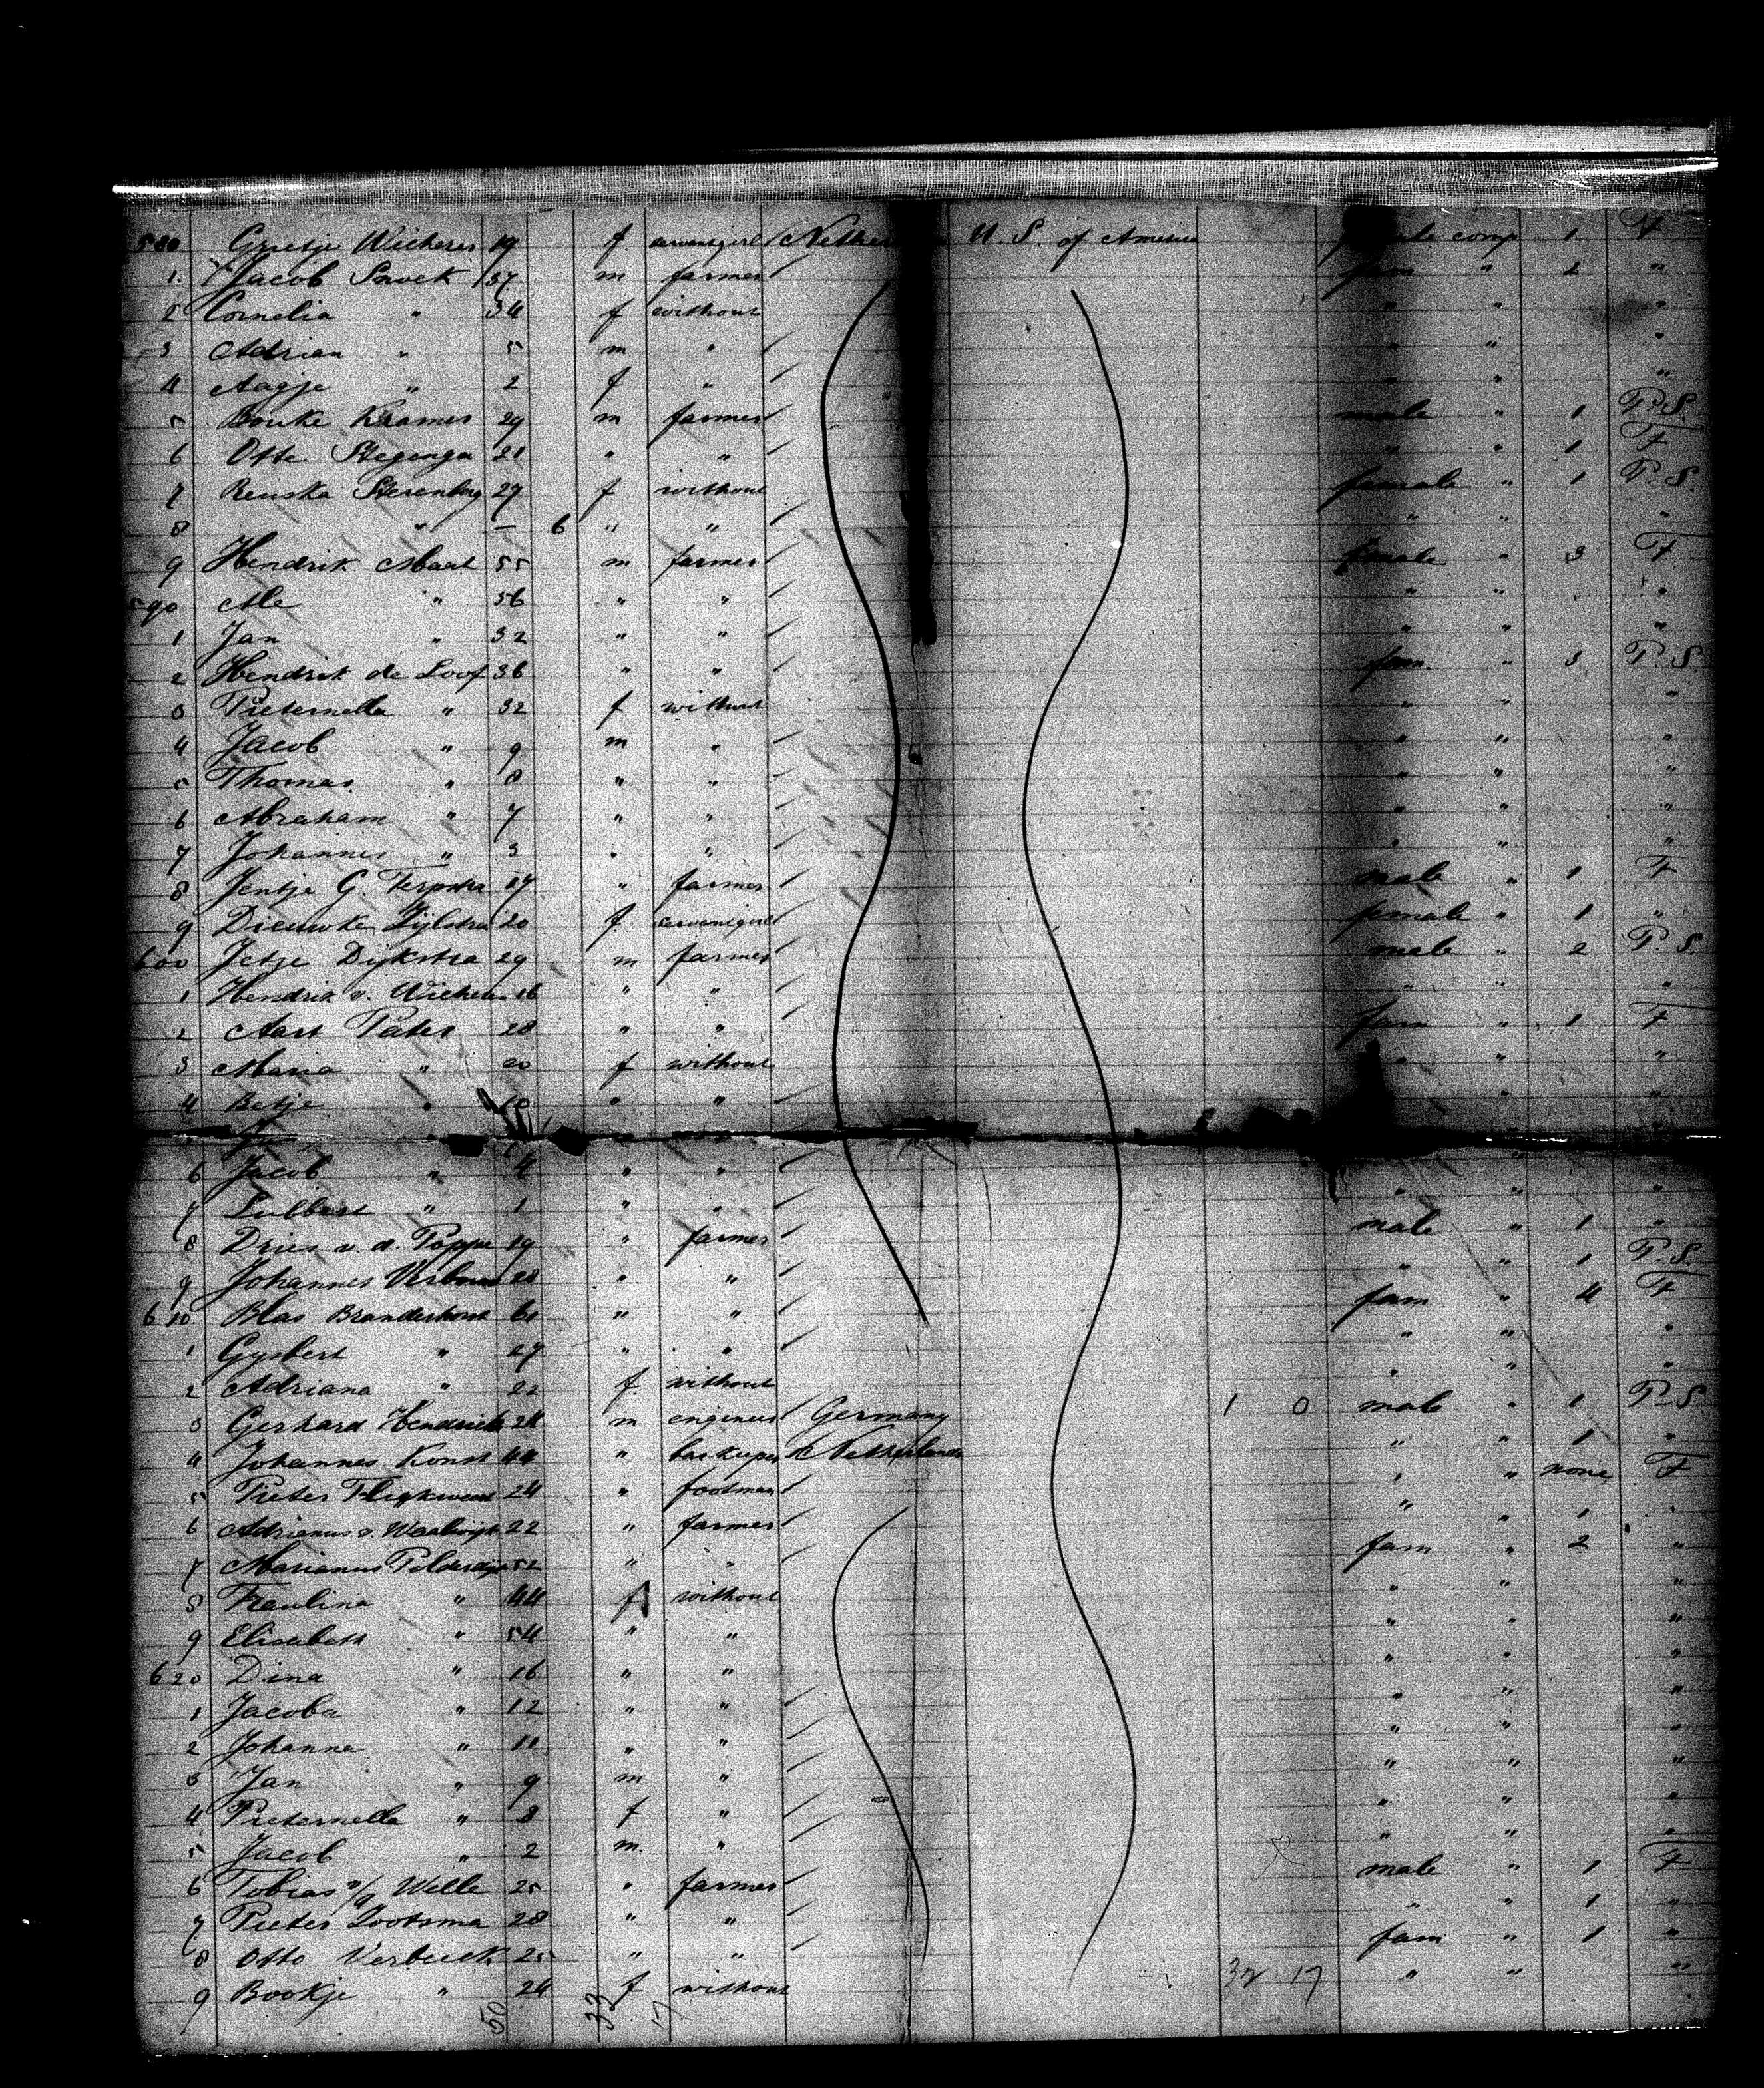 580 Grietje Wicheres 19 f servantgirl U. S. of America comp 1 F
1 Jacob Snoek 37 m farmer fam " 2 "
2 Cornelia " 34 f without " " "
3 Adrian " 5 m " " " "
4 Aagje " 2 f " " " "
5 Bouke Kramer 29 m farmer male " 1 P. S.
6 Otte Stegenga 21 " " " " 1 F
7 Renska Sterenberg 27 f without female " 1 P. S.
8 " – 6 " " " " "
9 Hendrik Maat 55 m farmer female " 3 F
590 Ale " 56 " " " " "
1 Jan " 32 " " " " "
2 Hendrik de Loof 36 " " fam. " 3 P. S.
3 Pieternella " 32 f without " " "
4 Jacob " 9 m " " " "
5 Thomas " 8 " " " " "
6 Abraham " 7 " " " " "
7 Johannes " 3 " " " " "
8 Jentje G. Terpstra 27 " farmer male " 1 F
9 Dieuwke Zijlstra 20 f servantgirl female " 1 "
600 Jetze Dijkstra 29 m farmer male " 2 P. S.
1 Hendrik v. 26 " " " " "
2 Aart Pater 28 " " fam " 1 F
3 Maria " 20 f without " " "
4 Betje " " " " " "
6 Jacob " 4 " " " " "
7 Lubbert " 1 " " " " "
8 Dries v. d. Poppe 19 " farmer male " 1 "
9 Johannes 28 " " " " 1 P. S.
610 Blas Branderhorst 61 " " fam " 4 F
1 Gysbert " 27 " " " " "
2 Adriana " 22 f. without " " "
3 Gerhard 24 m engineer Germany 1 0 male " 1 P. S.
4 Johannes Konst 44 " barkeeper Netherlands " " 1 "
5 Pieter 24 " footman " " none F
6 Adrianus v. Waalwijk 22 " farmer " " 1 "
7 Marianus 52 " " fam " 2 "
8 Paulina " 44 f without " " "
9 Elisabeth " 54 " " " " "
620 Dina " 16 " " " " "
1 Jacoba " 12 " " " " "
2 Johanna " 11 " " " " "
3 Jan " 9 m " " " "
4 Pieternella " 8 f " " " "
5 Jacob " 2 m. " " " "
6 Tobias v/d Welle 25 " farmer male " 1 F
7 Pieter Zootsma 28 " " " " 1 "
8 Otto Verbeek 25 " " fam " 1 "
9 Bookje " 24 f without 32 17 " " "
50 33 17